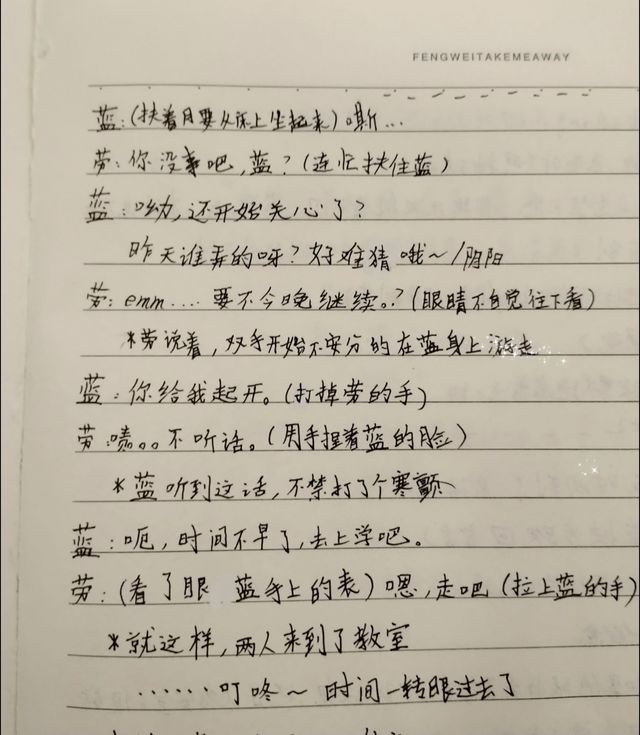 FENGWEITAKEMEAWAY
蓝:(扶着月要从床上坐起来)嘶...
劳:你没事吧,蓝?(连忙扶住蓝)
蓝:呦,还开始关心了?
昨天谁弄的呀?好难猜哦~/阴阳
劳:emm....要不今晚继续。?(眼睛不自觉往下看)
*劳说着,双手开始不安分的在蓝身上游走
蓝:你给我起开。(打掉劳的手)
劳:啧。。。不听话。(用手捏着蓝的脸)
*蓝听到这话,不禁打了个寒颤
蓝:呃,时间不早了,去上学吧。
劳:(看了眼 蓝手上的表)嗯,走吧(拉上蓝的手)
*就这样,两人来到了教室
······叮咚~时间一转眼过去了